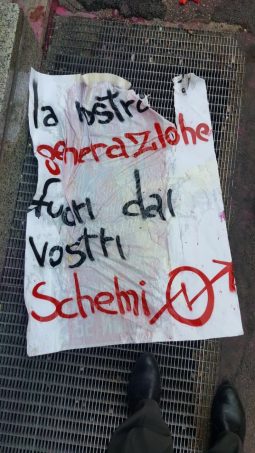 la nostra
generazione
fuori dai
vostri
Schemi